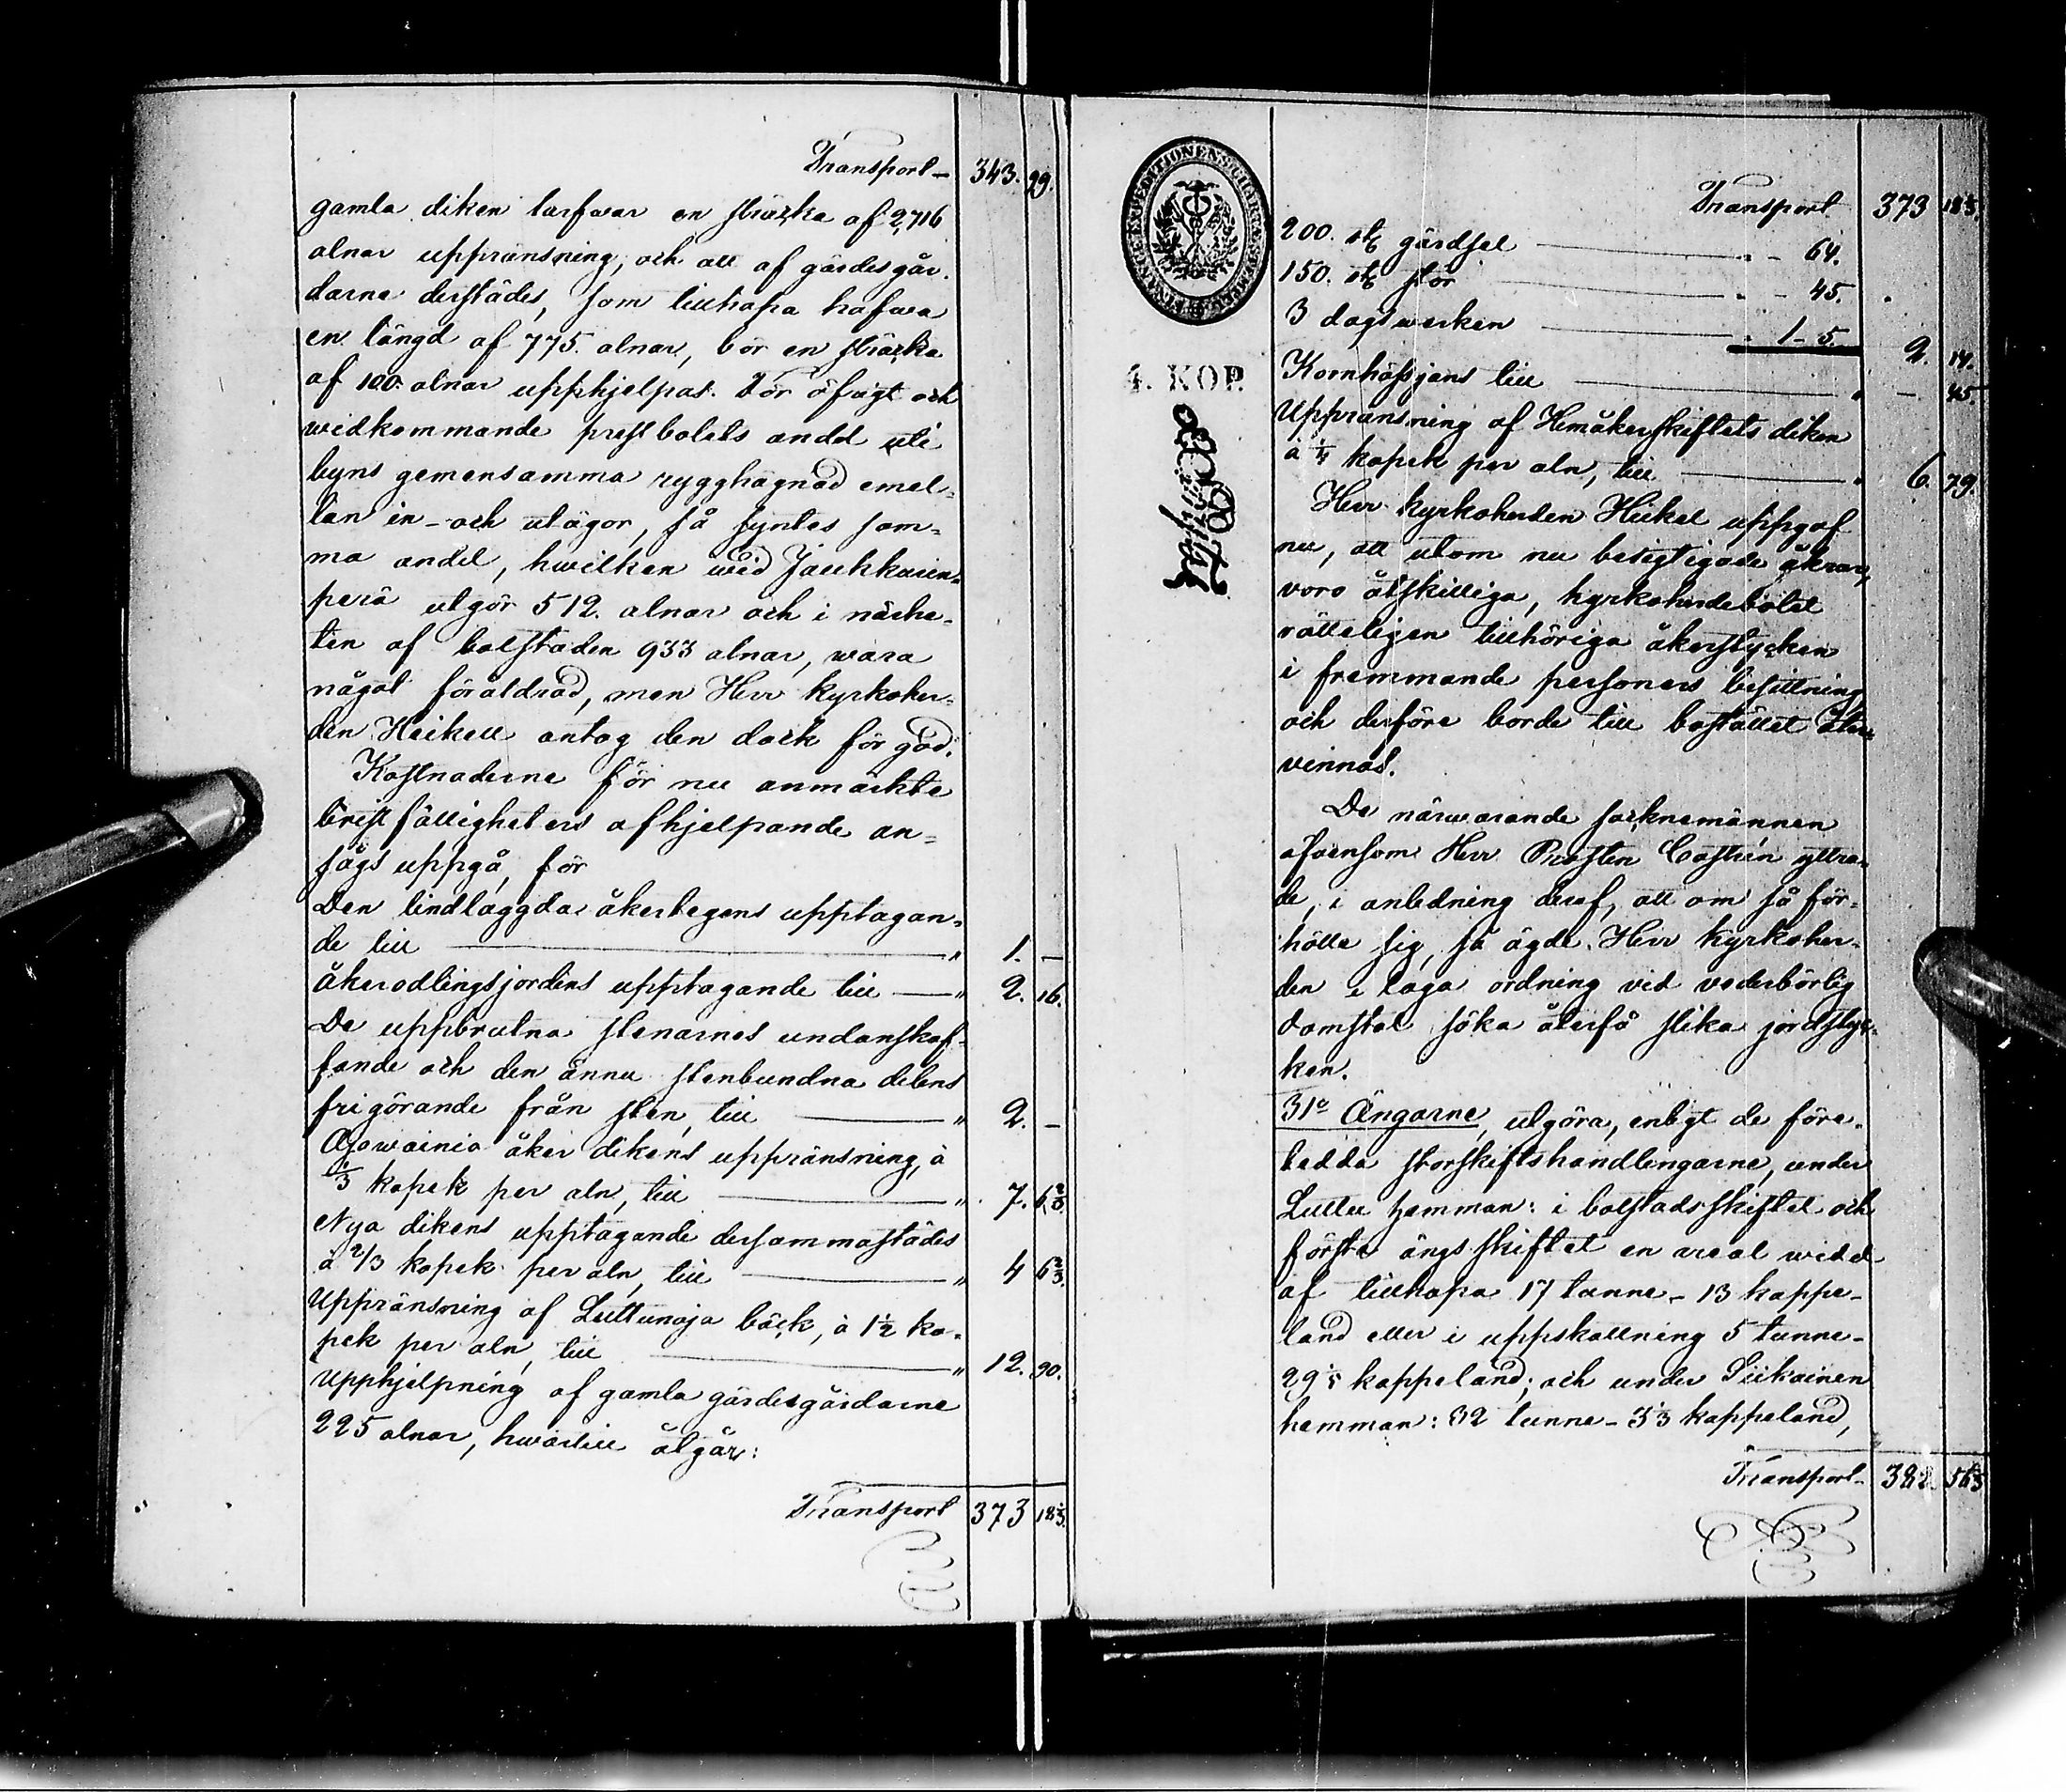 Transport — 343. 29.
gamla diken tarfvar en sträcka af 2,716
alnar uppränsning, och att af gärdesgår-
darne derstädes, som tillhopa hafva
en längd af 775. alnar, bör en sträcka
af 100. alnar upphjelpas. För öfrigt och
widkommande prestbolets andel uti
byns gemensamma rygghägnad emel-
lan in- och utägor, så syntes sam-
ma andel, hwilken wid Jauhkaisen-
perä utgör 512. alnar och i närhe-
ten af bolstaden 933 alnar, wara
något föråldrad, men Herr Kyrkoher-
den Heikell antog den dock för god.
Kostnaderne för nu anmärkte
bristfälligheters afhjelpande an-
sågs uppgå, för
Den lindlaggda åkertegens upptagan-
de till — " 1. —
åkerodlingsjordens upptagande till — " 2. 16.
De uppbrutna stenarnes undanskaf-
fande och den ännu stenbundna delens
frigörande från sten, till — " 2. —
Ajowainio åker dikens uppränsning, à
1/3 kopek per aln, till — " 7. 6 2/3.
Nya dikens upptagande dersammastädes
à 2/3 kopek per aln, till — " 4 6 2/3.
Uppränsning af Luttunoja bäck, à 1 1/2 ko-
pek per aln, till — " 12. 90.
Upphjelpning af gamla gärdesgårdarne
225 alnar, hwartill åtgår:
Transport 373 18 1/3.
FINANCE EXPEDITIONENS CHARTÆ
4. KOP.
Transport 373 18 1/3.
200. st gärdsel — " - 64.
150. st stör — " - 45.
3 dagswerken — " 1 - 5. 2. 14.
Kornhässjans till — " — 45.
Upprensning af Hemåkerskiftets diken
à 1/4 kopek per aln, till — " 6. 79.
Herr Kyrkoherden Heikel uppgaf
nu, att utom nu besigtigade åkrar,
voro åtskilliga, kyrkoherdebolet
rätteligen tillhöriga åkerstycken
i fremmande personers besittning
och derföre borde till bostället åter-
vinnas.
De närwarande socknemännen
äfvensom Herr Prosten Castrén yttra-
de, i anledning deraf, att om så för-
hölle sig, så ägde Herr Kyrkoher-
den i laga ordning vid vederbörlig
domstol söka återfå slika jordstyc-
ken.
31o Ängarne, utgöra, enligt de före-
tedda storskiftshandlingarne, under
Luttu hemman: i bolstadsskiftet och
första ängsskiftet en areal widd
af tillhopa 17 tunne- 13 kappe-
land eller i uppskattning 5 tunne-
29 1/5 kappeland; och under Siikainen
hemman: 32 tunne- 3 1/3 kappeland,
Transport — 382. 56 1/3